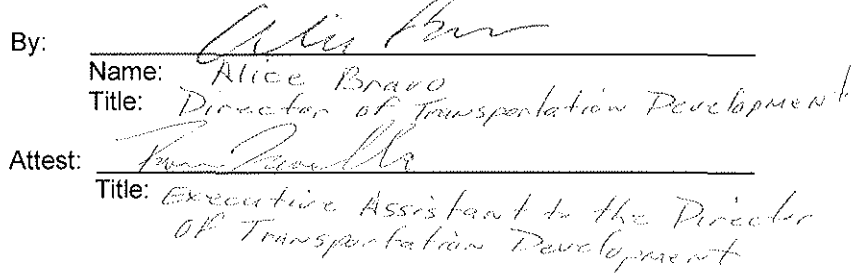 By:
Name: Alice Bravo
Title: Director of Transportation Development
Attest:
Title: Executive Assistant to the Director
of Transportation Development